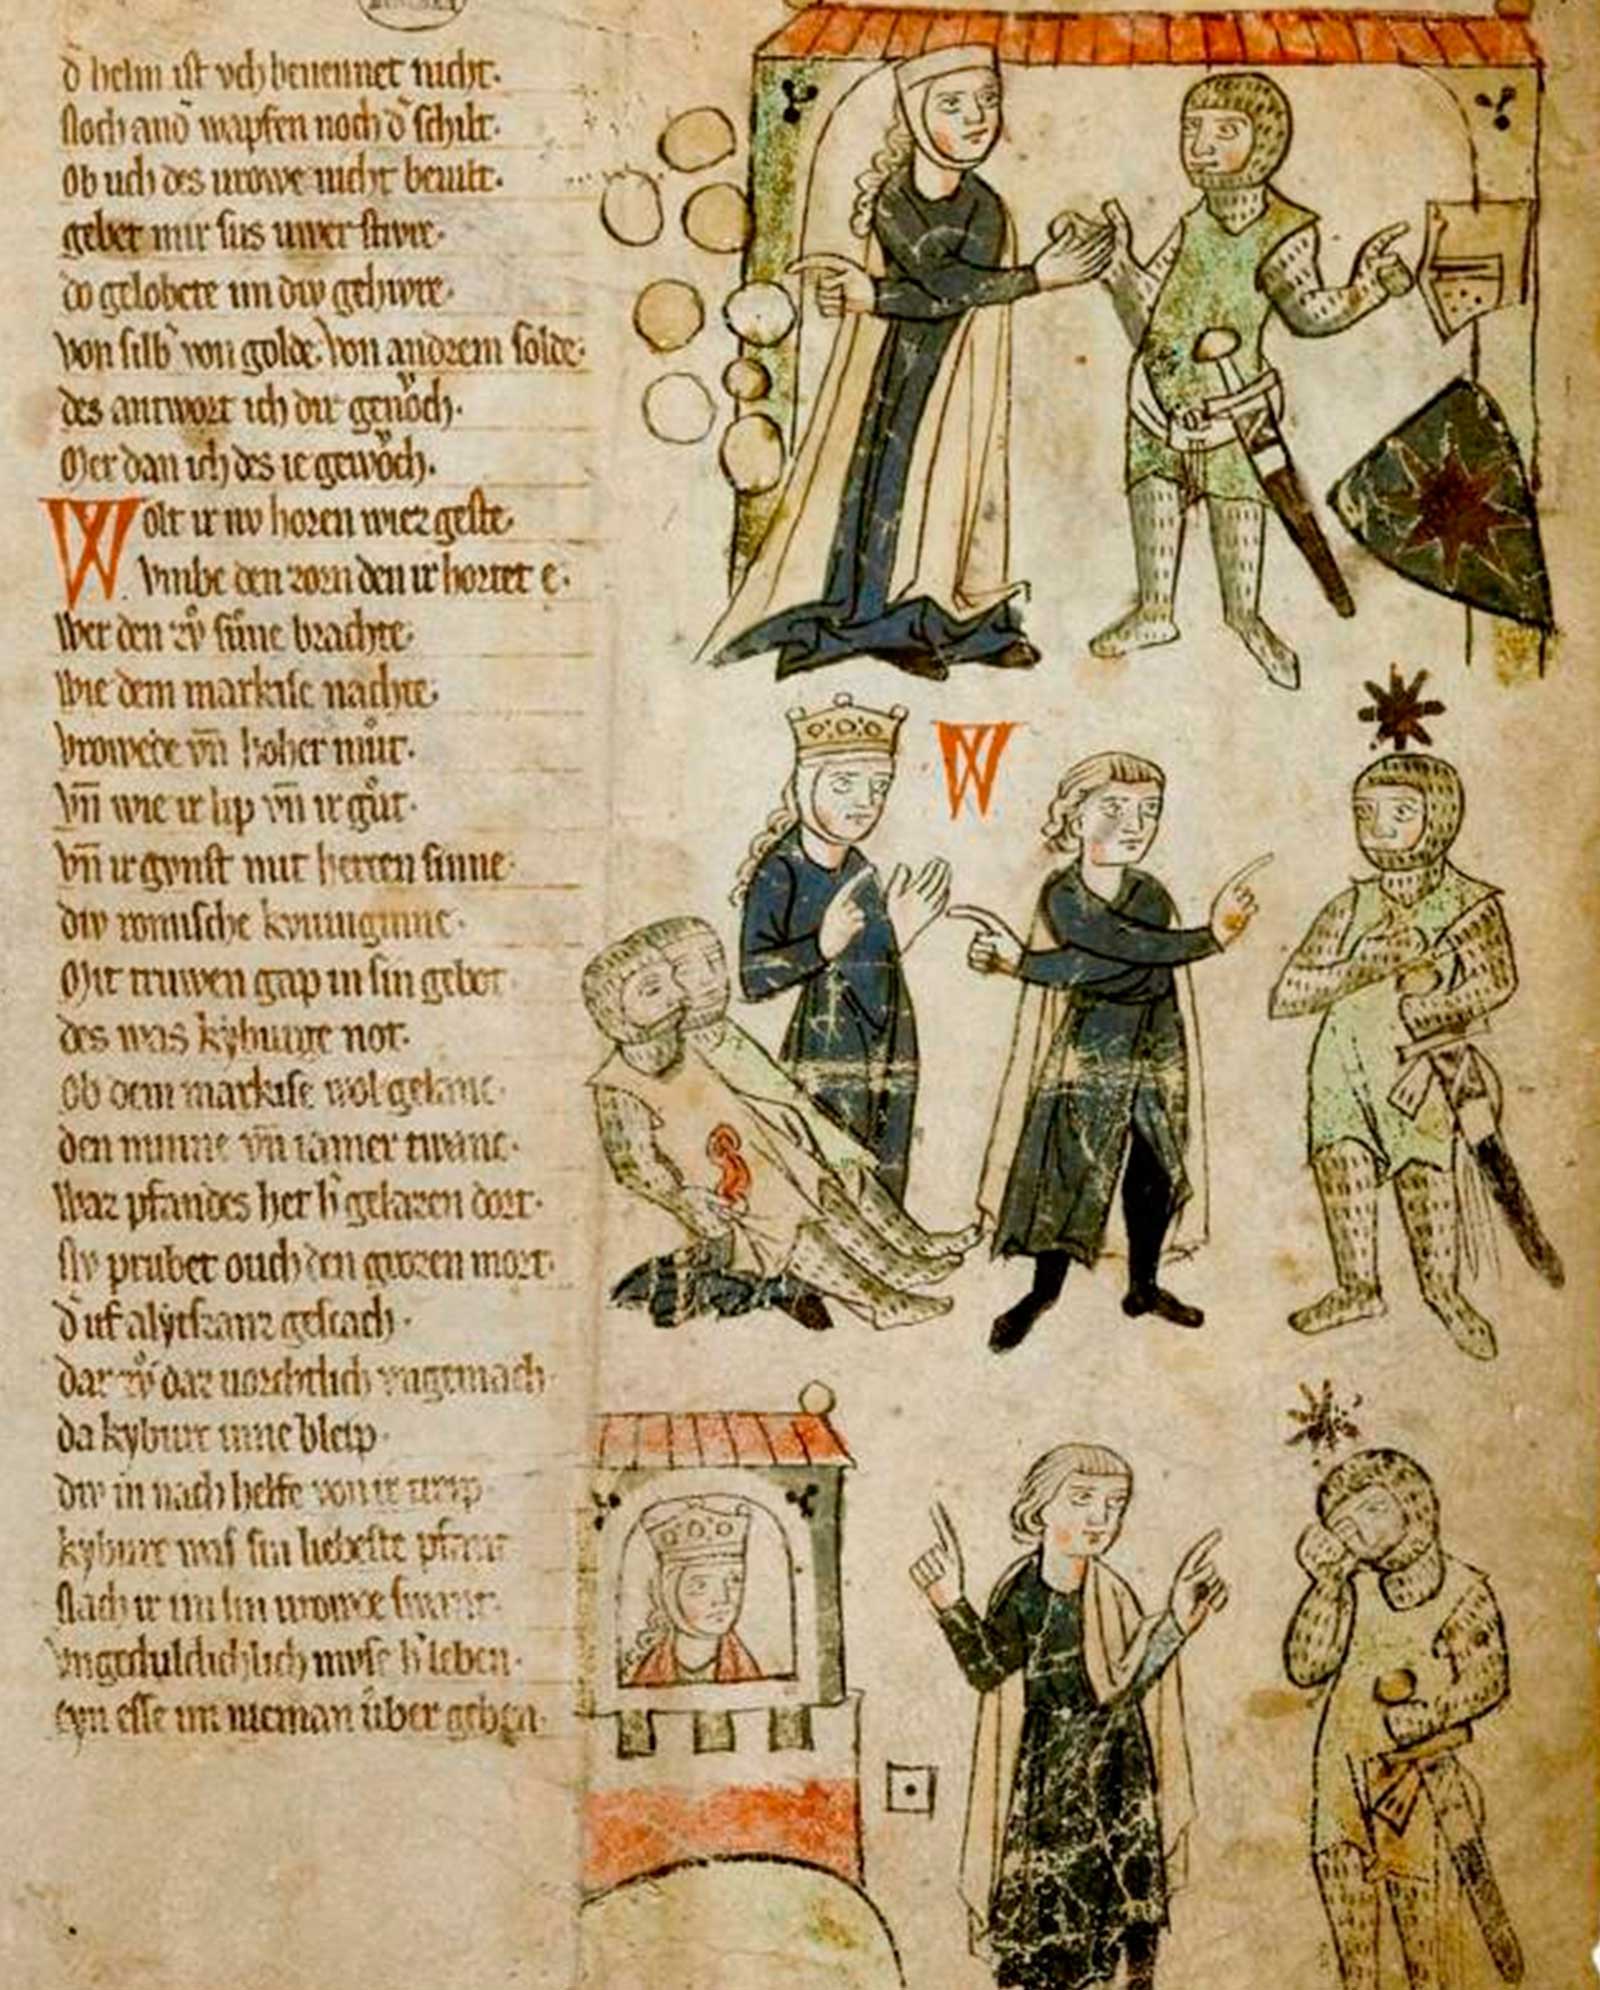 d̕ helm ist vch benennet nicht.
Noch and̕ wapfen noch d̕ schilt.
Ob uch des urowe nicht beuilt.
gebet mir sus uwer stivre.
do gelobete im div gehivre.
von silb̕ von golde. von andrem solde.
des antwort ich dir genůch.
Mer dan ich des ie gewůch.
Wolt ir nv horen wiez geste.
Vmbe den zorn den ir hortet e.
Wer den zv̊ sune brachte.
Wie dem markise nachte.
Vrowede vn̄ hoher můt.
Vn̄ wie ir lip vn̄ ir gůt.
Vn̄ ir gvnst mit herren sinne.
div romische kvniginne.
Mit truwen gap in sin gebot.
des was kyburge not.
Ob dem markise wol gelanc.
den minne vn̄ iamer twanc.
Waz pfandes het h̕ gelazen dort.
Nv prubet ouch den grozen mort.
d̕ uf alytschanz gescach.
dar zv̊ daz uorchtlich vngemach
da kyburc inne bleip.
div in nach helfe von ir treip
kyburc was sin liebeste pfant
Nach ir im sin urowede swant.
Vngeduldichlich mvse h̕ leben.
eyn esse im nieman über geben.
W